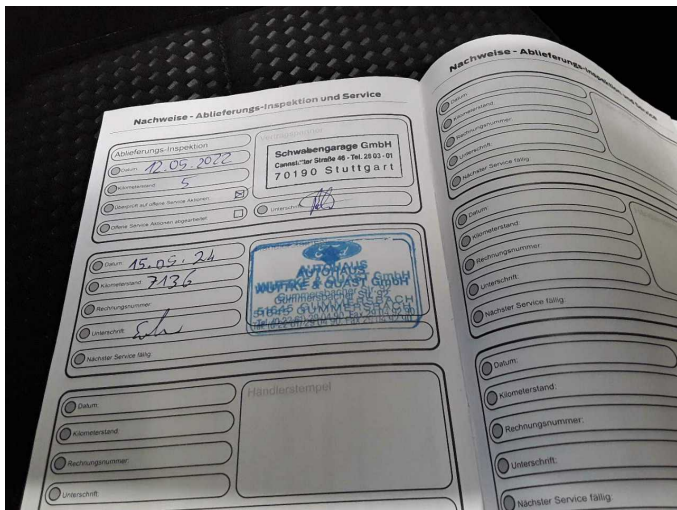 Nachweise - Ablieferungs-Inspektion und Service
Ablieferungs-Inspektion
Datum: 12.05.2022
Kilometerstand: 5
Überprüft auf offene Service Aktionen
Offene Service Aktionen abgearbeitet
Schwabengarage GmbH
Cannstatter Straße 46 - Tel. 28 03 - 01
70190 Stuttgart
Unterschrift
Datum: 15.05.24
Kilometerstand: 7136
Rechnungsnummer:
Unterschrift:
Nächster Service fällig:
AUTOHAUS
WUTTKE & QUAST GmbH
51645 GUMMERSBACH
Datum:
Kilometerstand:
Rechnungsnummer:
Unterschrift:
Händlerstempel
Nachweise - Ablieferungs-Inspektion und Service
Datum:
Kilometerstand:
Rechnungsnummer:
Unterschrift:
Nächster Service fällig:
Datum:
Kilometerstand:
Rechnungsnummer:
Unterschrift:
Nächster Service fällig:
Datum:
Kilometerstand:
Rechnungsnummer:
Unterschrift:
Nächster Service fällig: